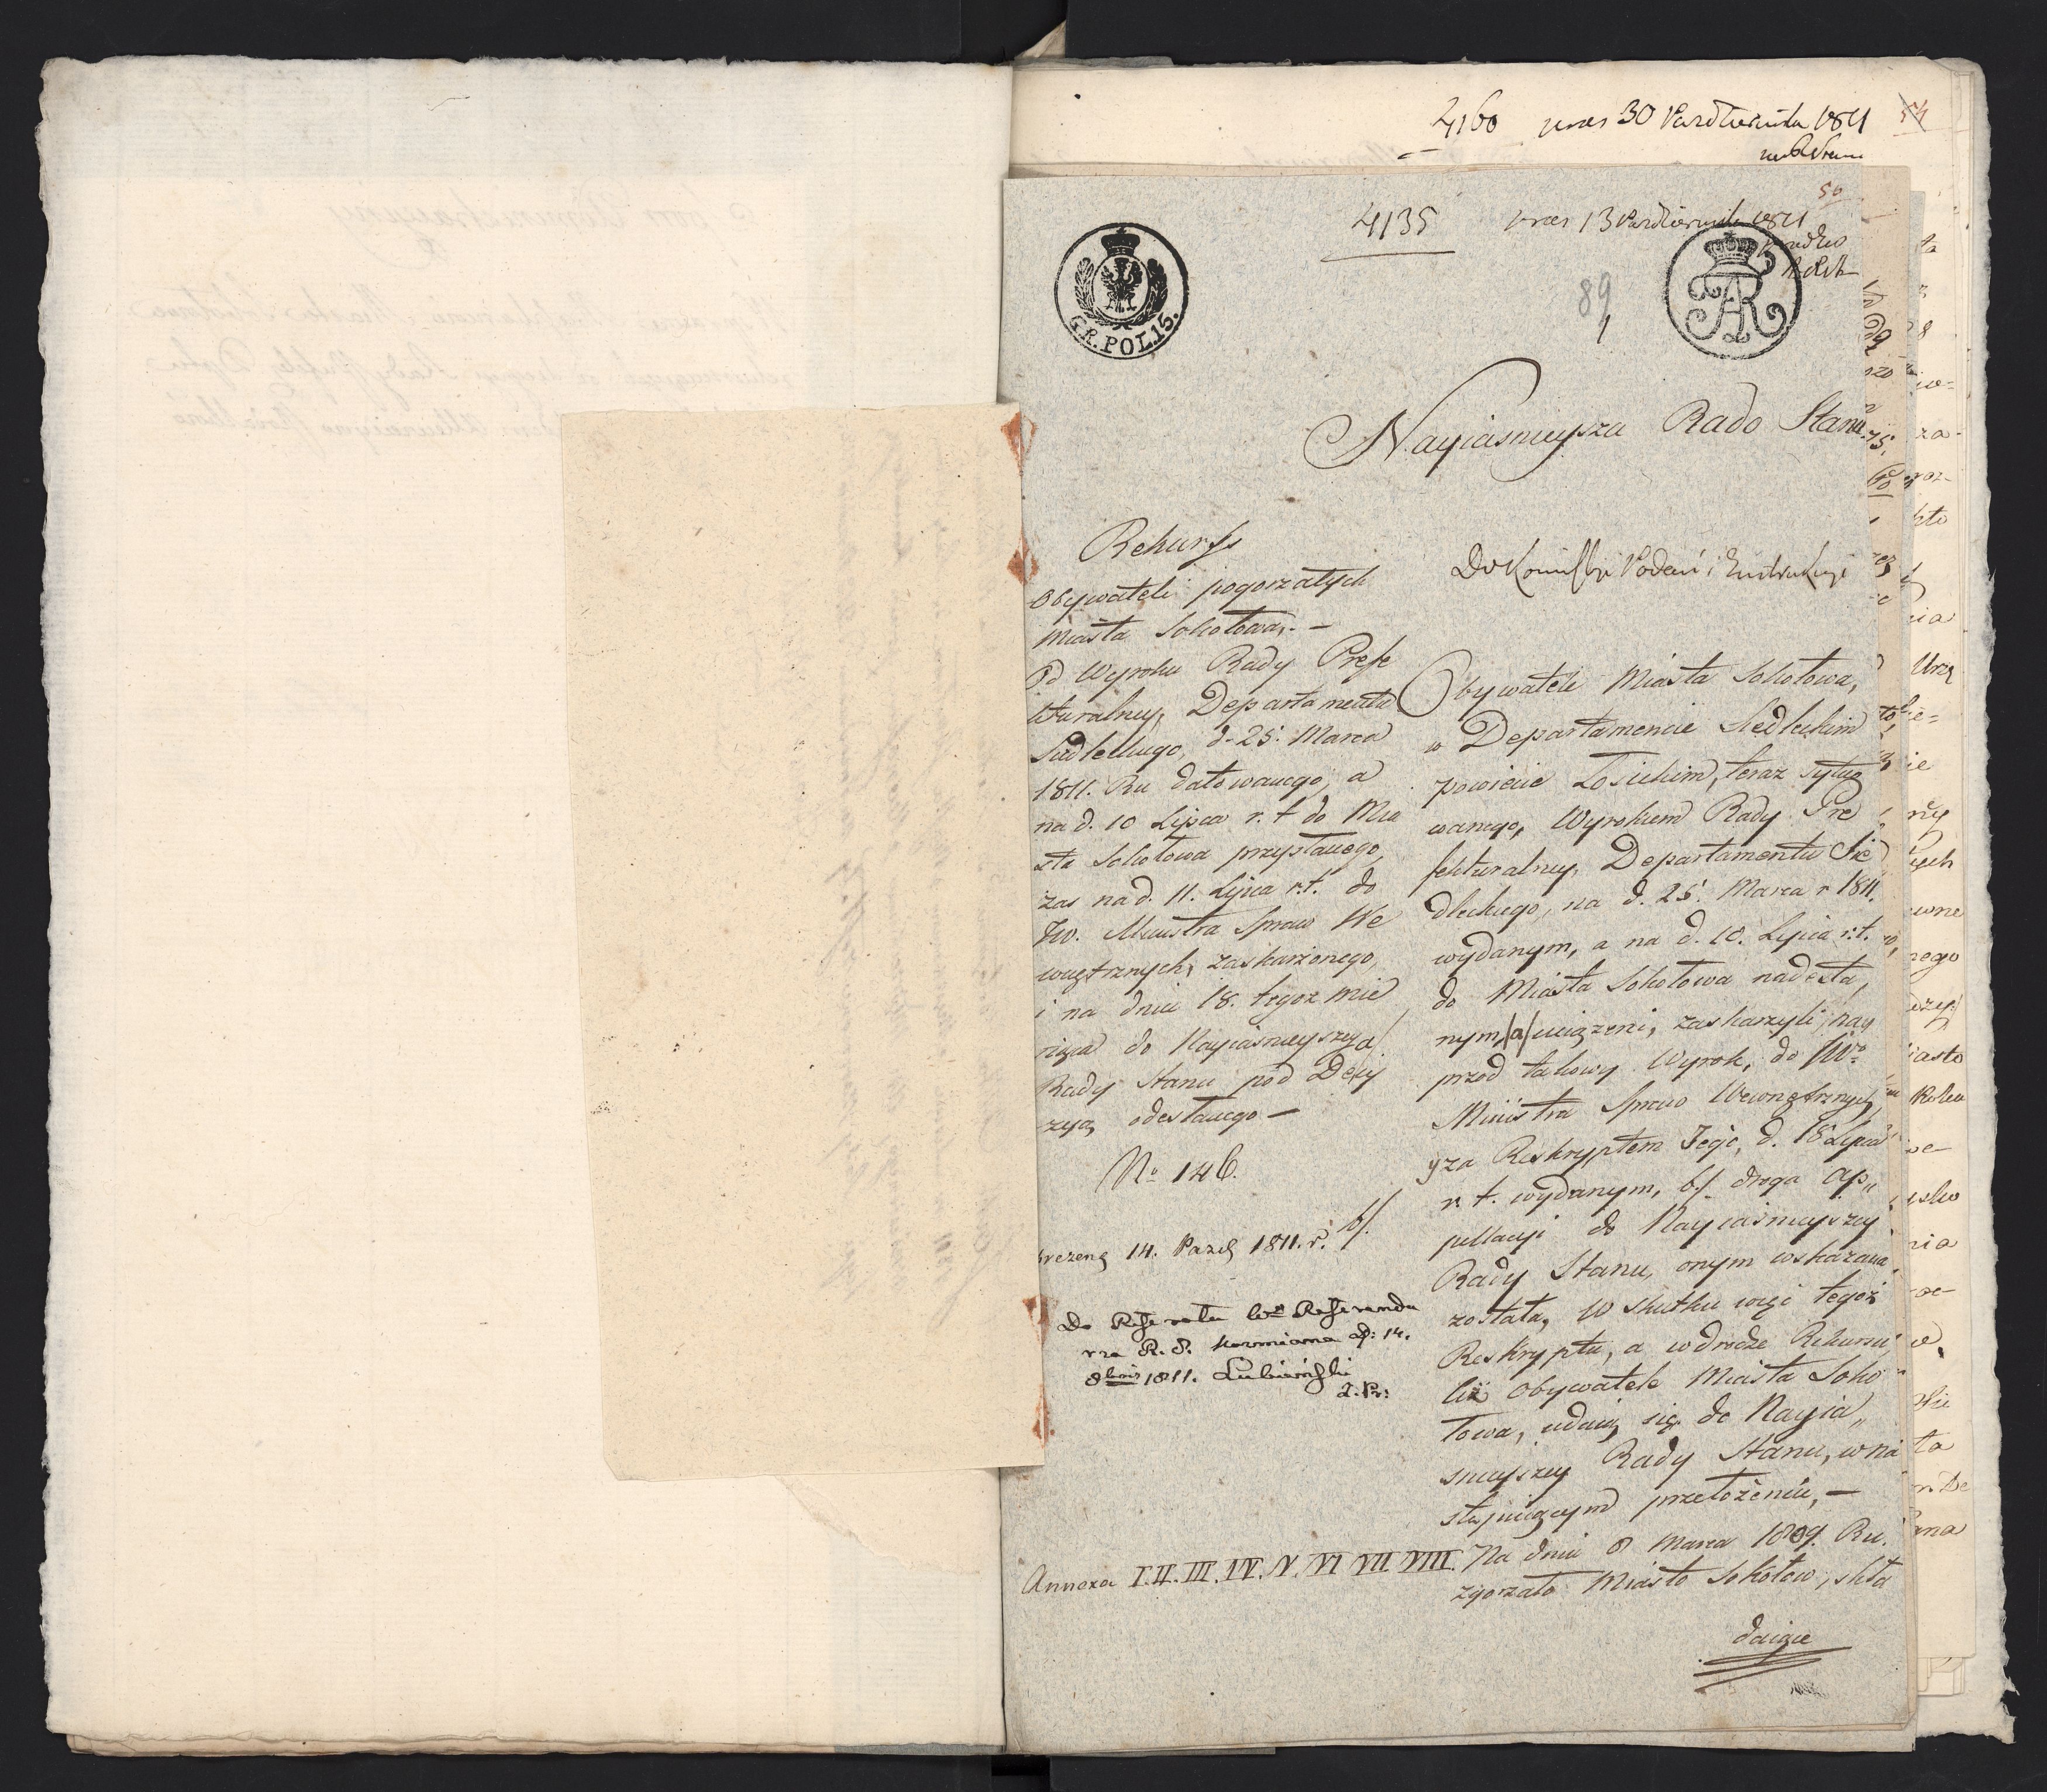 4160 pres 30 Października 1811
54
50
4135 pres 13 Października 1811
89
1
GR. POL. 15.
Nayiasnieysza Rado Stanu
Rekurss
Obywateli pogorzałych
miasta Sokołowa, –
Od Wyroku Rady Prefe
kturalney, Departamentu
Siedleckiego, d. 25. Marca
1811. Ru datowanego, a
na d. 10 Lipca r. t. do Mia
sta Sokołowa przysłanego,
zas na d. 11. Lipca r. t. do
JW. Ministra Spraw We
wnętrznych, zaskarżonego,
i na dniu 18. tegoż mie
siąca do Nayiasnieyszey
Rady Stanu pod Decy
zyą odesłanego –
No 146.
prezent 14. Pazd 1811. r. b/.
Do Referatu Wo Referenda
rza R. S. Kozmiana d: 14.
8bris 1811. Lubieński
Annexa I. II. III. IV. V. VI VII. VIII.
Do Komissyi Podań i Instrukcyi
Obywatele Miasta Sokołowa,
w Departamencie Siedleckim
powiecie Łosickim, teraz sytuo
wanego, Wyrokiem Rady Pre
fekturalney, Departamentu Sie
dleckiego, na d. 25. Marca r 1811.
wydanym, a na d. 10. Lipca r. t.
do Miasta Sokołowa nadesła,
nym, /a/ uciążeni, zaskarzyli nay
przod takowy Wyrok, do JWo
Ministra Spraw Wewnętrznych,
yza Reskryptem Jego, d. 18 Lipca
r. t. wydanym, b/. droga ap„
pellacyi do Nayiasnieyszey
Rady Stanu, onym wskazana
została, W skutku więc tegoż
Reskryptu, a w drodze Rekursu
ciż Obywatele Miasta Soko
łowa, udaią się do Nayia„
snieyszey Rady Stanu, w na
stępuiącym przełożeniu, –
Na dniu 8 Marca 1809. Ru.
zgorzało Miasto Sokołow, skła
daiące